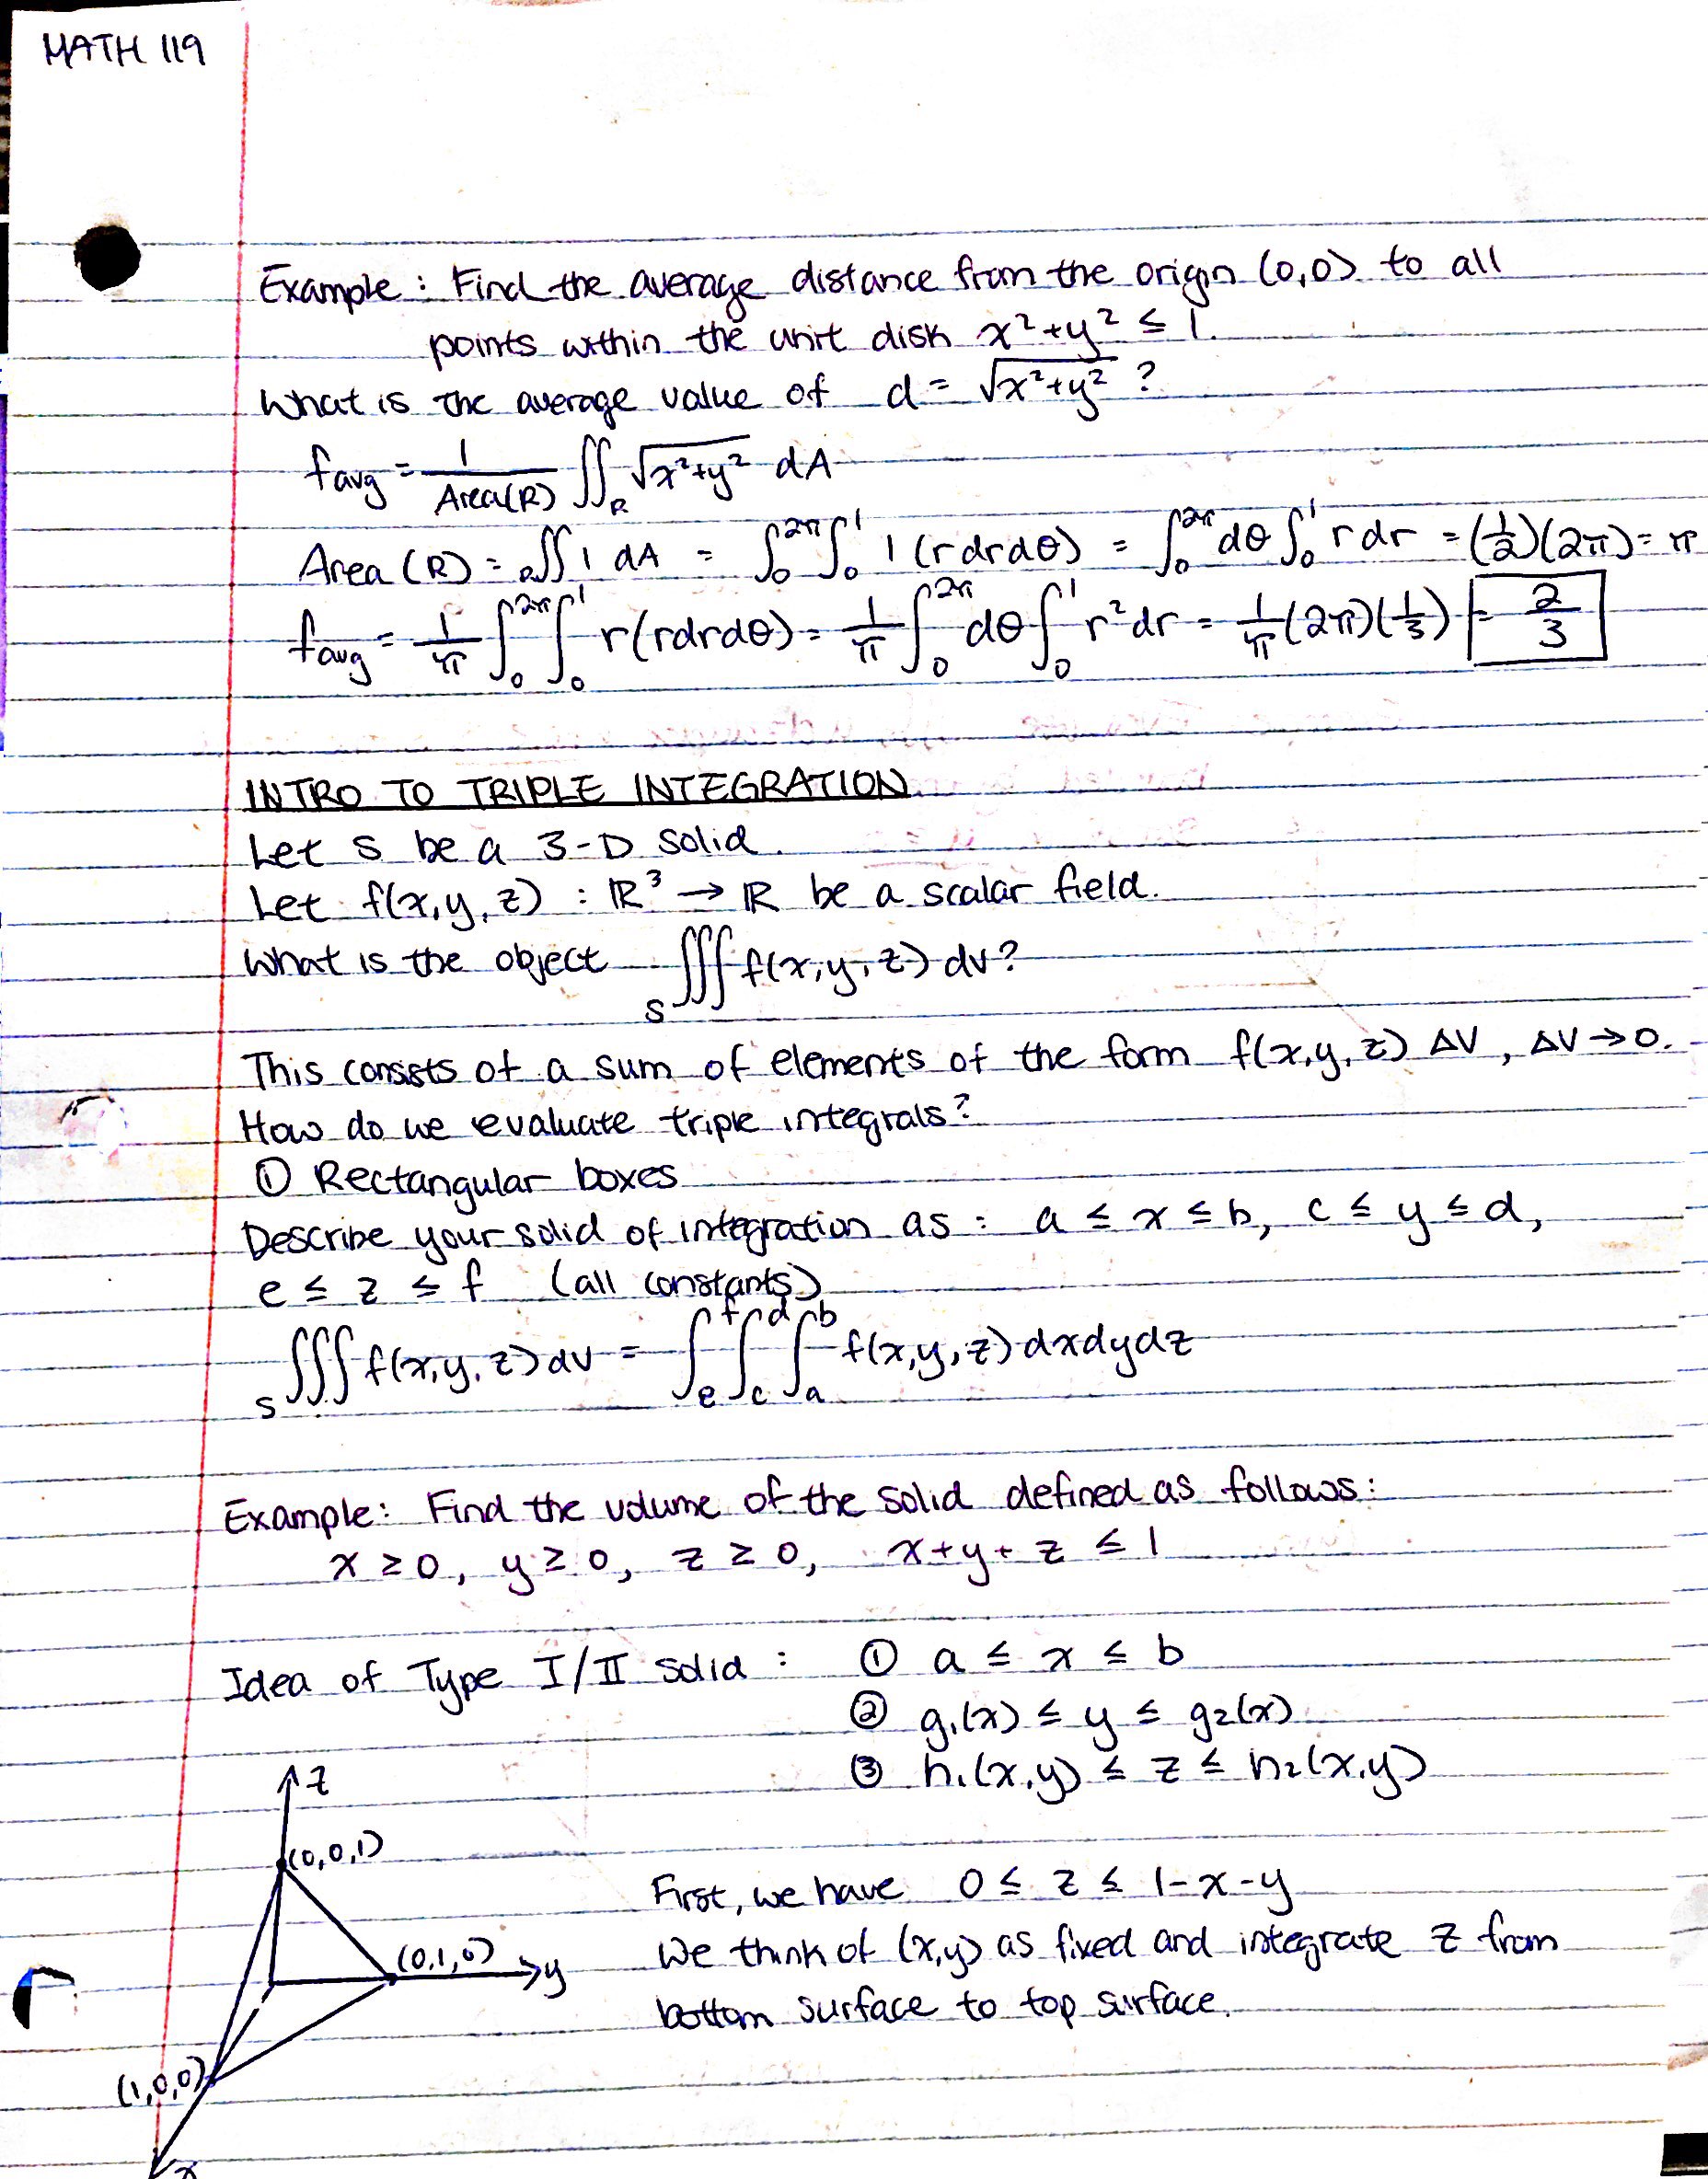 MATH 119
Example : Find the average distance from the origin (0,0) to all
points within the unit disk x² + y² ≤ 1.
What is the average value of d = √(x²+y²) ?
f_avg = 1/Area(R) ∬_R √(x²+y²) dA
Area (R) = _R∬ 1 dA = ∫₀^2π ∫₀^1 1 (r dr dθ) = ∫₀^2π dθ ∫₀^1 r dr = (1/2)(2π) = π
f_avg = 1/π ∫₀^2π ∫₀^1 r(r dr dθ) = 1/π ∫₀^2π dθ ∫₀^1 r² dr = 1/π (2π)(1/3) = 2/3
INTRO TO TRIPLE INTEGRATION
Let S be a 3-D solid.
Let f(x,y,z) : ℝ³ → ℝ be a scalar field.
What is the object ∭_S f(x,y,z) dv?
This consists of a sum of elements of the form f(x,y,z) ΔV , ΔV → 0.
How do we evaluate triple integrals?
① Rectangular boxes
Describe your solid of integration as : a ≤ x ≤ b, c ≤ y ≤ d,
e ≤ z ≤ f (all constants)
∭_S f(x,y,z) dv = ∫_e^f ∫_c^d ∫_a^b f(x,y,z) dx dy dz
Example: Find the volume of the solid defined as follows:
x ≥ 0, y ≥ 0, z ≥ 0, x + y + z ≤ 1
Idea of Type I/II solid : ① a ≤ x ≤ b
② g₁(x) ≤ y ≤ g₂(x)
③ h₁(x,y) ≤ z ≤ h₂(x,y)
z
(0,0,1)
(0,1,0)
y
(1,0,0)
x
First, we have 0 ≤ z ≤ 1-x-y
We think of (x,y) as fixed and integrate z from
bottom surface to top surface.